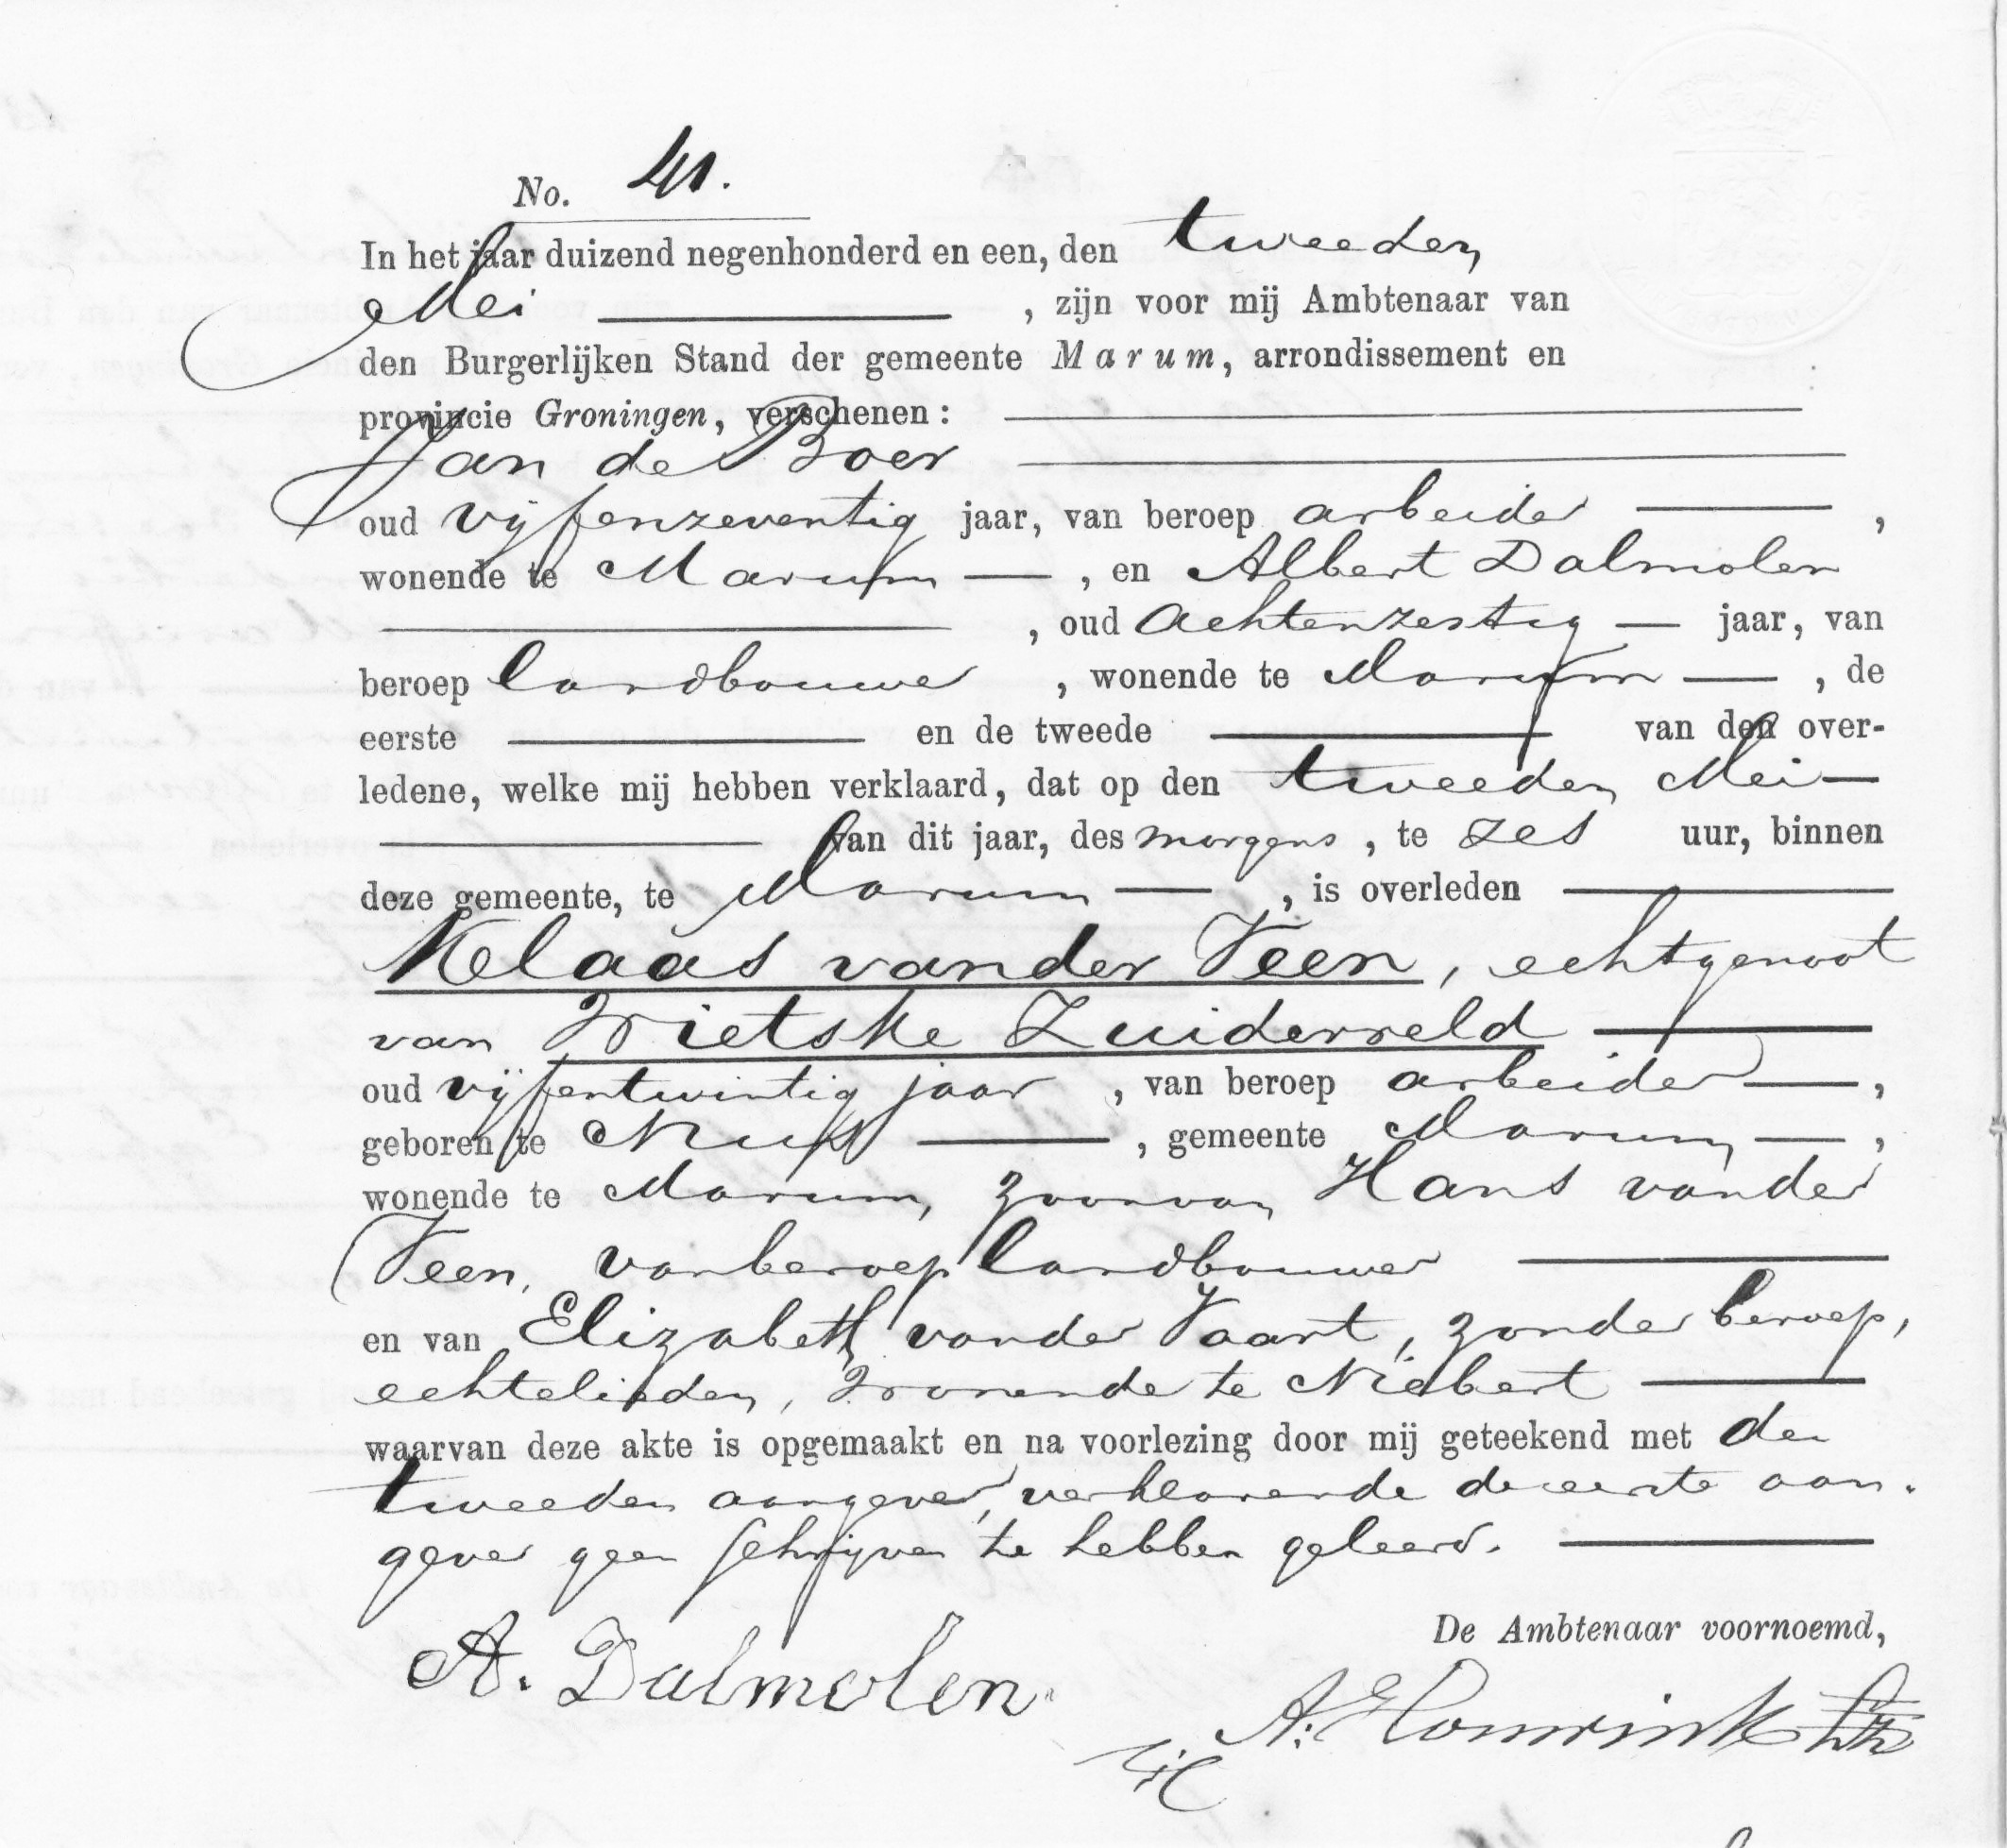 No. 41.
In het jaar duizend negenhonderd en een, den tweeden
Mei , zijn voor mij Ambtenaar van
den Burgerlijken Stand der gemeente Marum, arrondissement en
provincie Groningen, verschenen:
Jan de Boer
oud vijfenzeventig jaar, van beroep arbeider ,
wonende te Marum , en Albert Dalmolen
, oud achtenzestig jaar, van
beroep landbouwer , wonende te Marum , de
eerste en de tweede van den over-
ledene, welke mij hebben verklaard, dat op den tweeden Mei
van dit jaar, des morgens , te zes uur, binnen
deze gemeente, te Marum , is overleden
Klaas van der Veen, echtgenoot
van Wietske Zuiderveld
oud vijfentwintig jaar , van beroep arbeider ,
geboren te Nuis , gemeente Marum ,
wonende te Marum, zoon van Hans van der
Veen, van beroep landbouwer
en van Elizabeth van der Vaart, zonder beroep,
echtelieden, wonende te Niebert
waarvan deze akte is opgemaakt en na voorlezing door mij geteekend met den
tweeden aangever, verklarende de eerste aan-
gever geen schrijven te hebben geleerd.
De Ambtenaar voornoemd,
A. Dalmolen